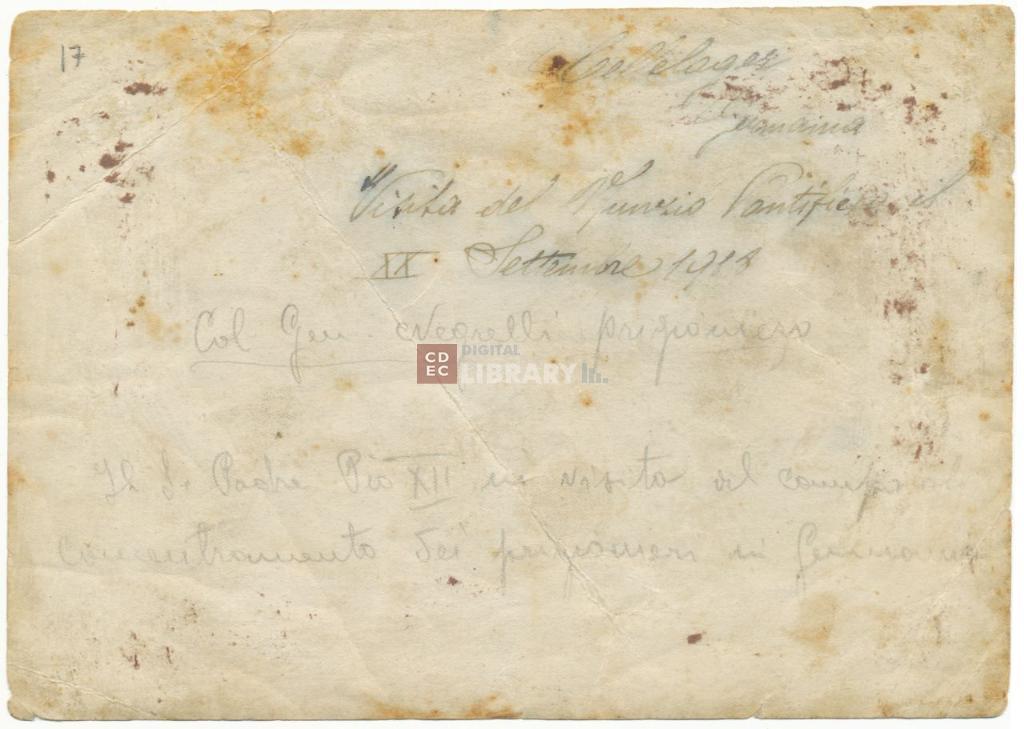 17
Cellelager
Germania
Visita del Nunzio Pontificio il
XX Settembre 1918
Col Gen. Negrelli prigioniero
CDEC DIGITAL LIBRARY
Il S. Padre Pio XII in visita al campo di
concentramento dei prigionieri in Germania